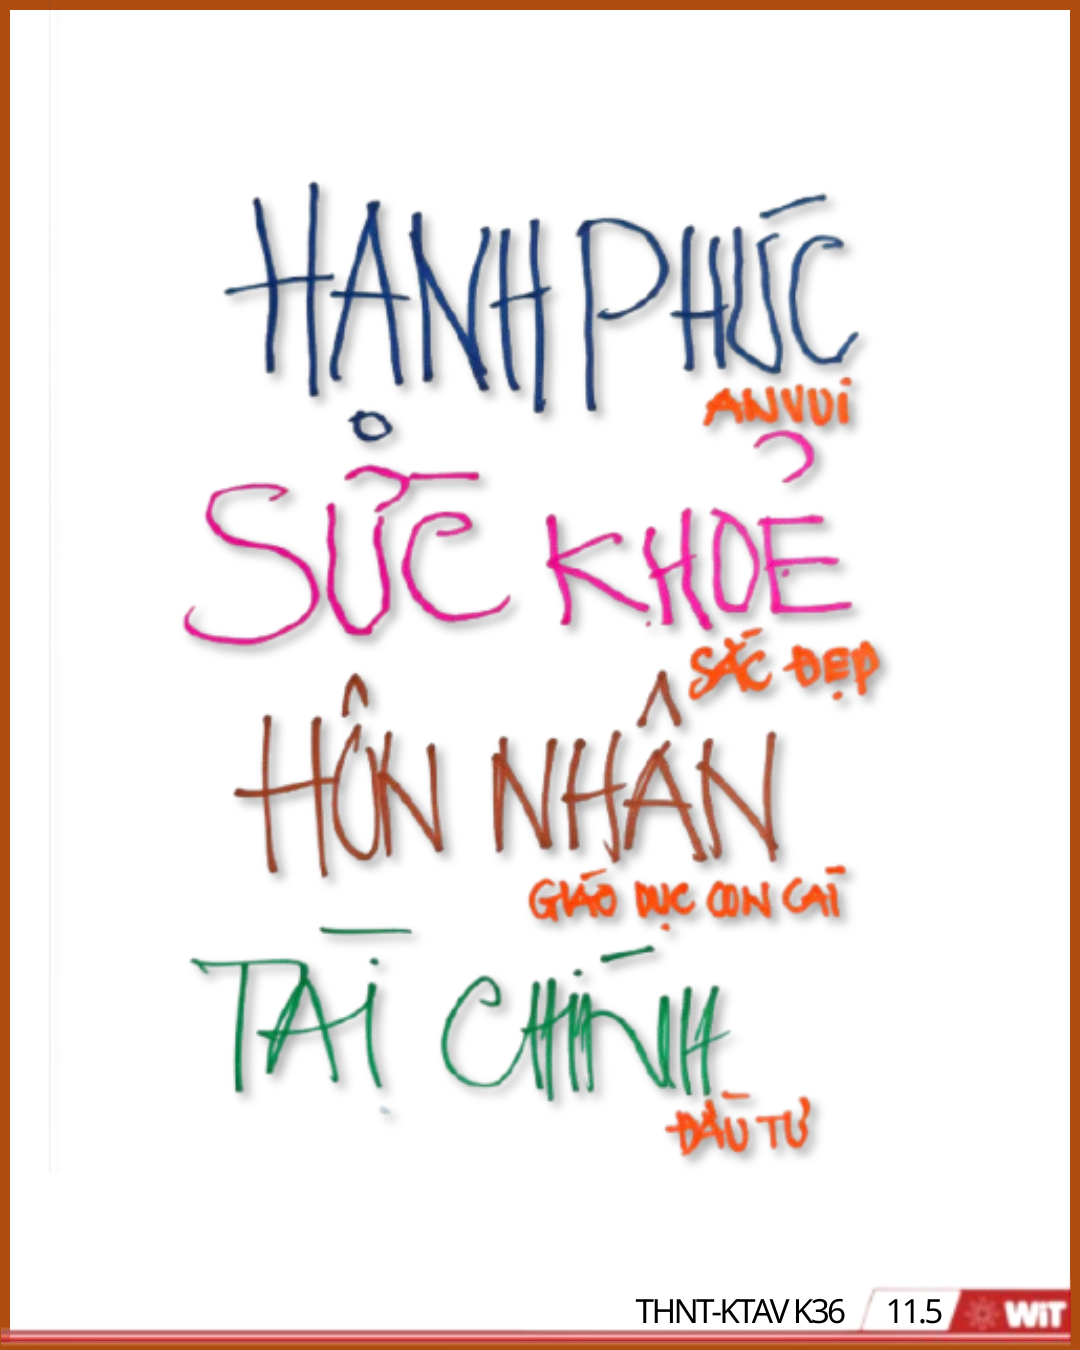 HẠNH PHÚC
AN VUI
SỨC KHOẺ
SẮC ĐẸP
HÔN NHÂN
GIÁO DỤC CON CÁI
TÀI CHÍNH
ĐẦU TƯ
THNT-KTAV K36 11.5 WiT